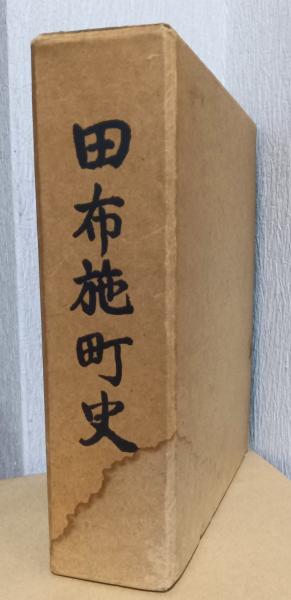 田布施町史